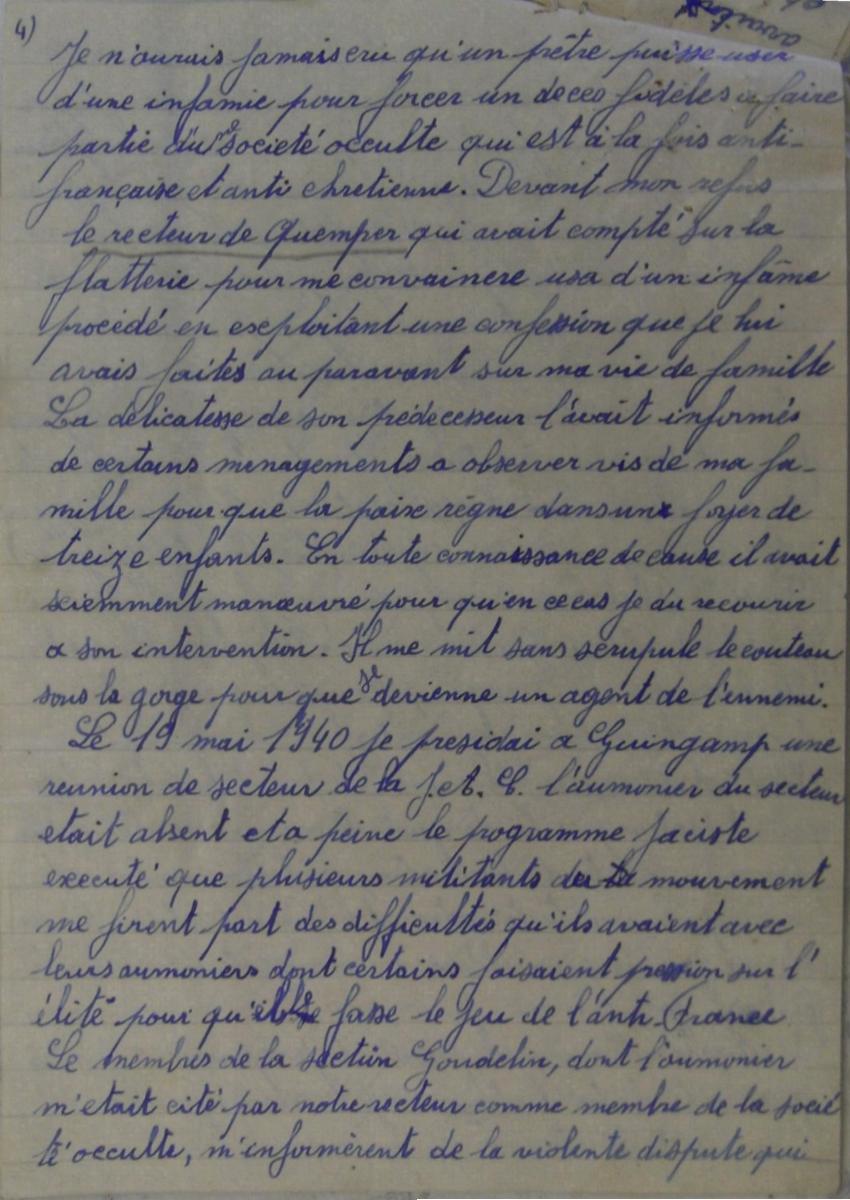 4)
Je n'aurais jamais cru qu'un prêtre puisse user
d'une infamie pour forcer un de ces fidèles a faire
partie d'une societé occulte qui est à la fois anti-
française et anti chretienne. Devant mon refus
le recteur de Quemper qui avait compté sur la
flatterie pour me convaincre usa d'un infâme
procédé en exploitant une confession que je lui
avais faites au paravant sur ma vie de famille
La délicatesse de son prédecesseur l'avait informés
de certains menagements a observer vis de ma fa-
mille pour que la paix règne dans un foyer de
treize enfants. En toute connaissance de cause il avait
sciemment manœuvré pour qu'en ce cas je du recourir
a son intervention. Il me mit sans scrupule le couteau
sous la gorge pour que je devienne un agent de l'ennemi.
Le 19 mai 1940 je presidai a Guingamp une
reunion de secteur de la J.A.C. l'aumonier du secteur
etait absent et a peine le programme jaciste
executé que plusieurs militants du mouvement
me firent part des difficultés qu'ils avaient avec
leurs aumoniers dont certains faisaient pression sur l'
élite pour qu'elle fasse le jeu de l'anti-France
Le membres de la section Goudelin, dont l'aumonier
m'etait cité par notre recteur comme membre de la socié
té occulte, m'informèrent de la violente dispute qui